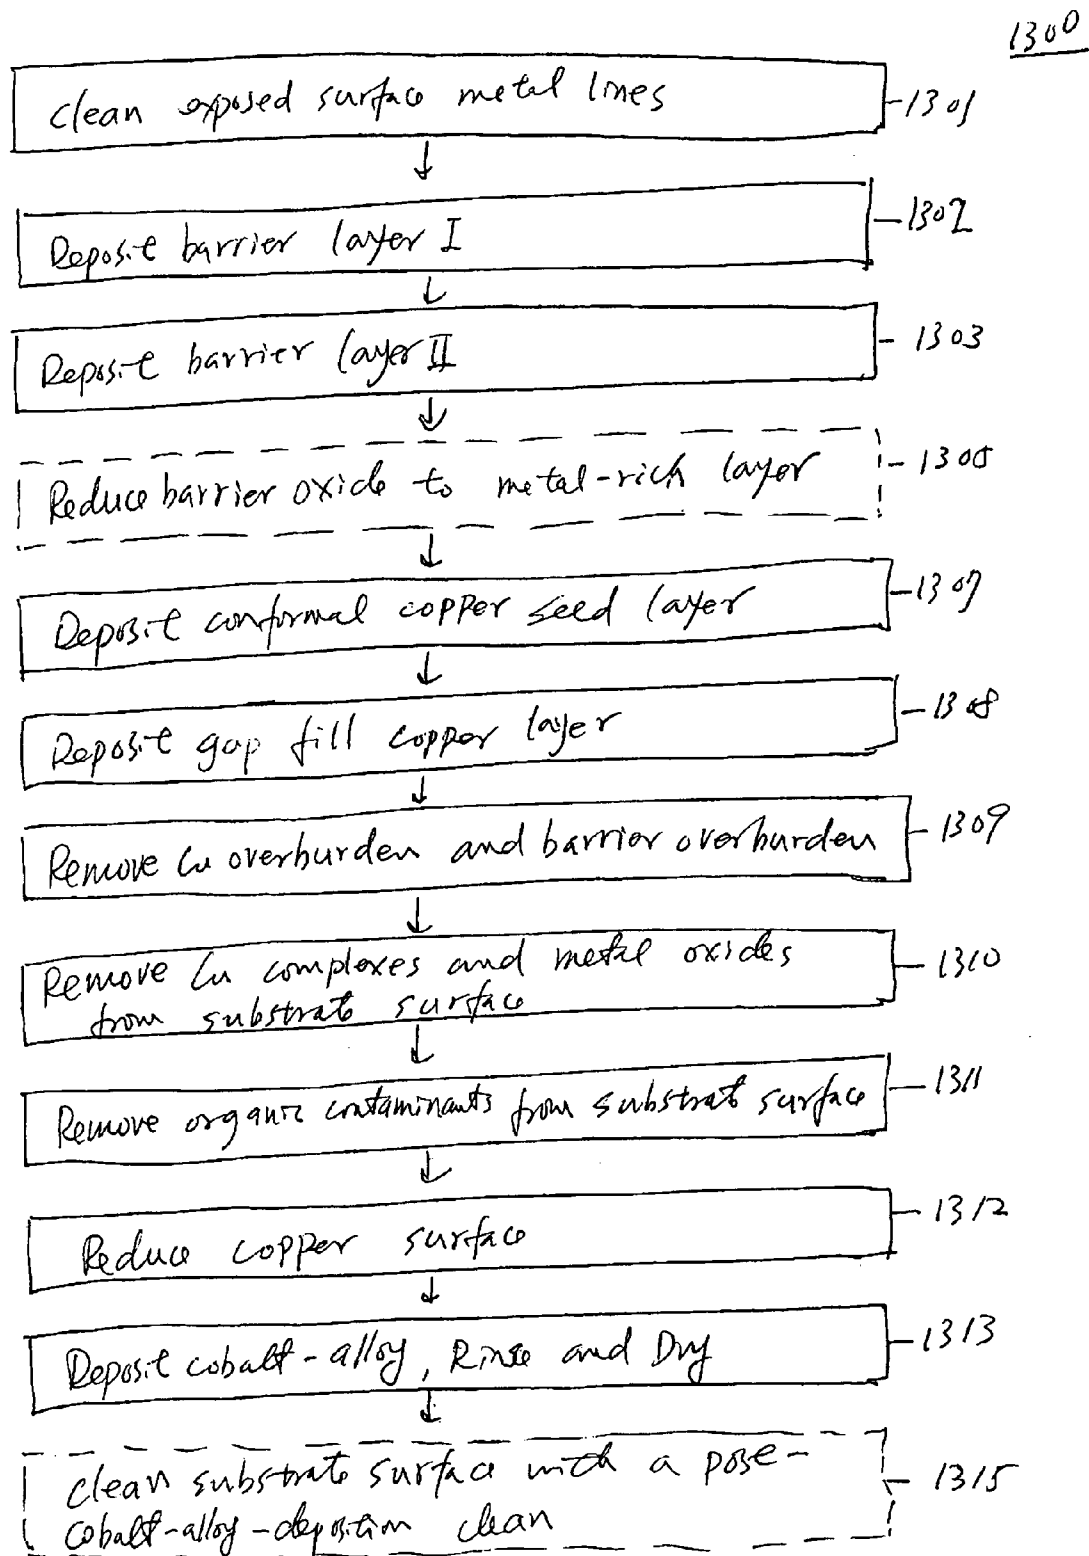 1300
clean exposed surface metal lines
1301
Deposit barrier layer I
1302
Deposit barrier layer II
1303
Reduce barrier oxide to metal-rich layer
1305
Deposit conformal copper seed layer
1307
Deposit gap fill copper layer
1308
Remove Cu overburden and barrier overburden
1309
Remove Cu complexes and metal oxides
from substrate surface
1310
Remove organic contaminants from substrat surface
1311
Reduce copper surface
1312
Deposit cobalt-alloy, Rinse and Dry
1313
clean substrate surface with a post-
cobalt-alloy-deposition clean
1315